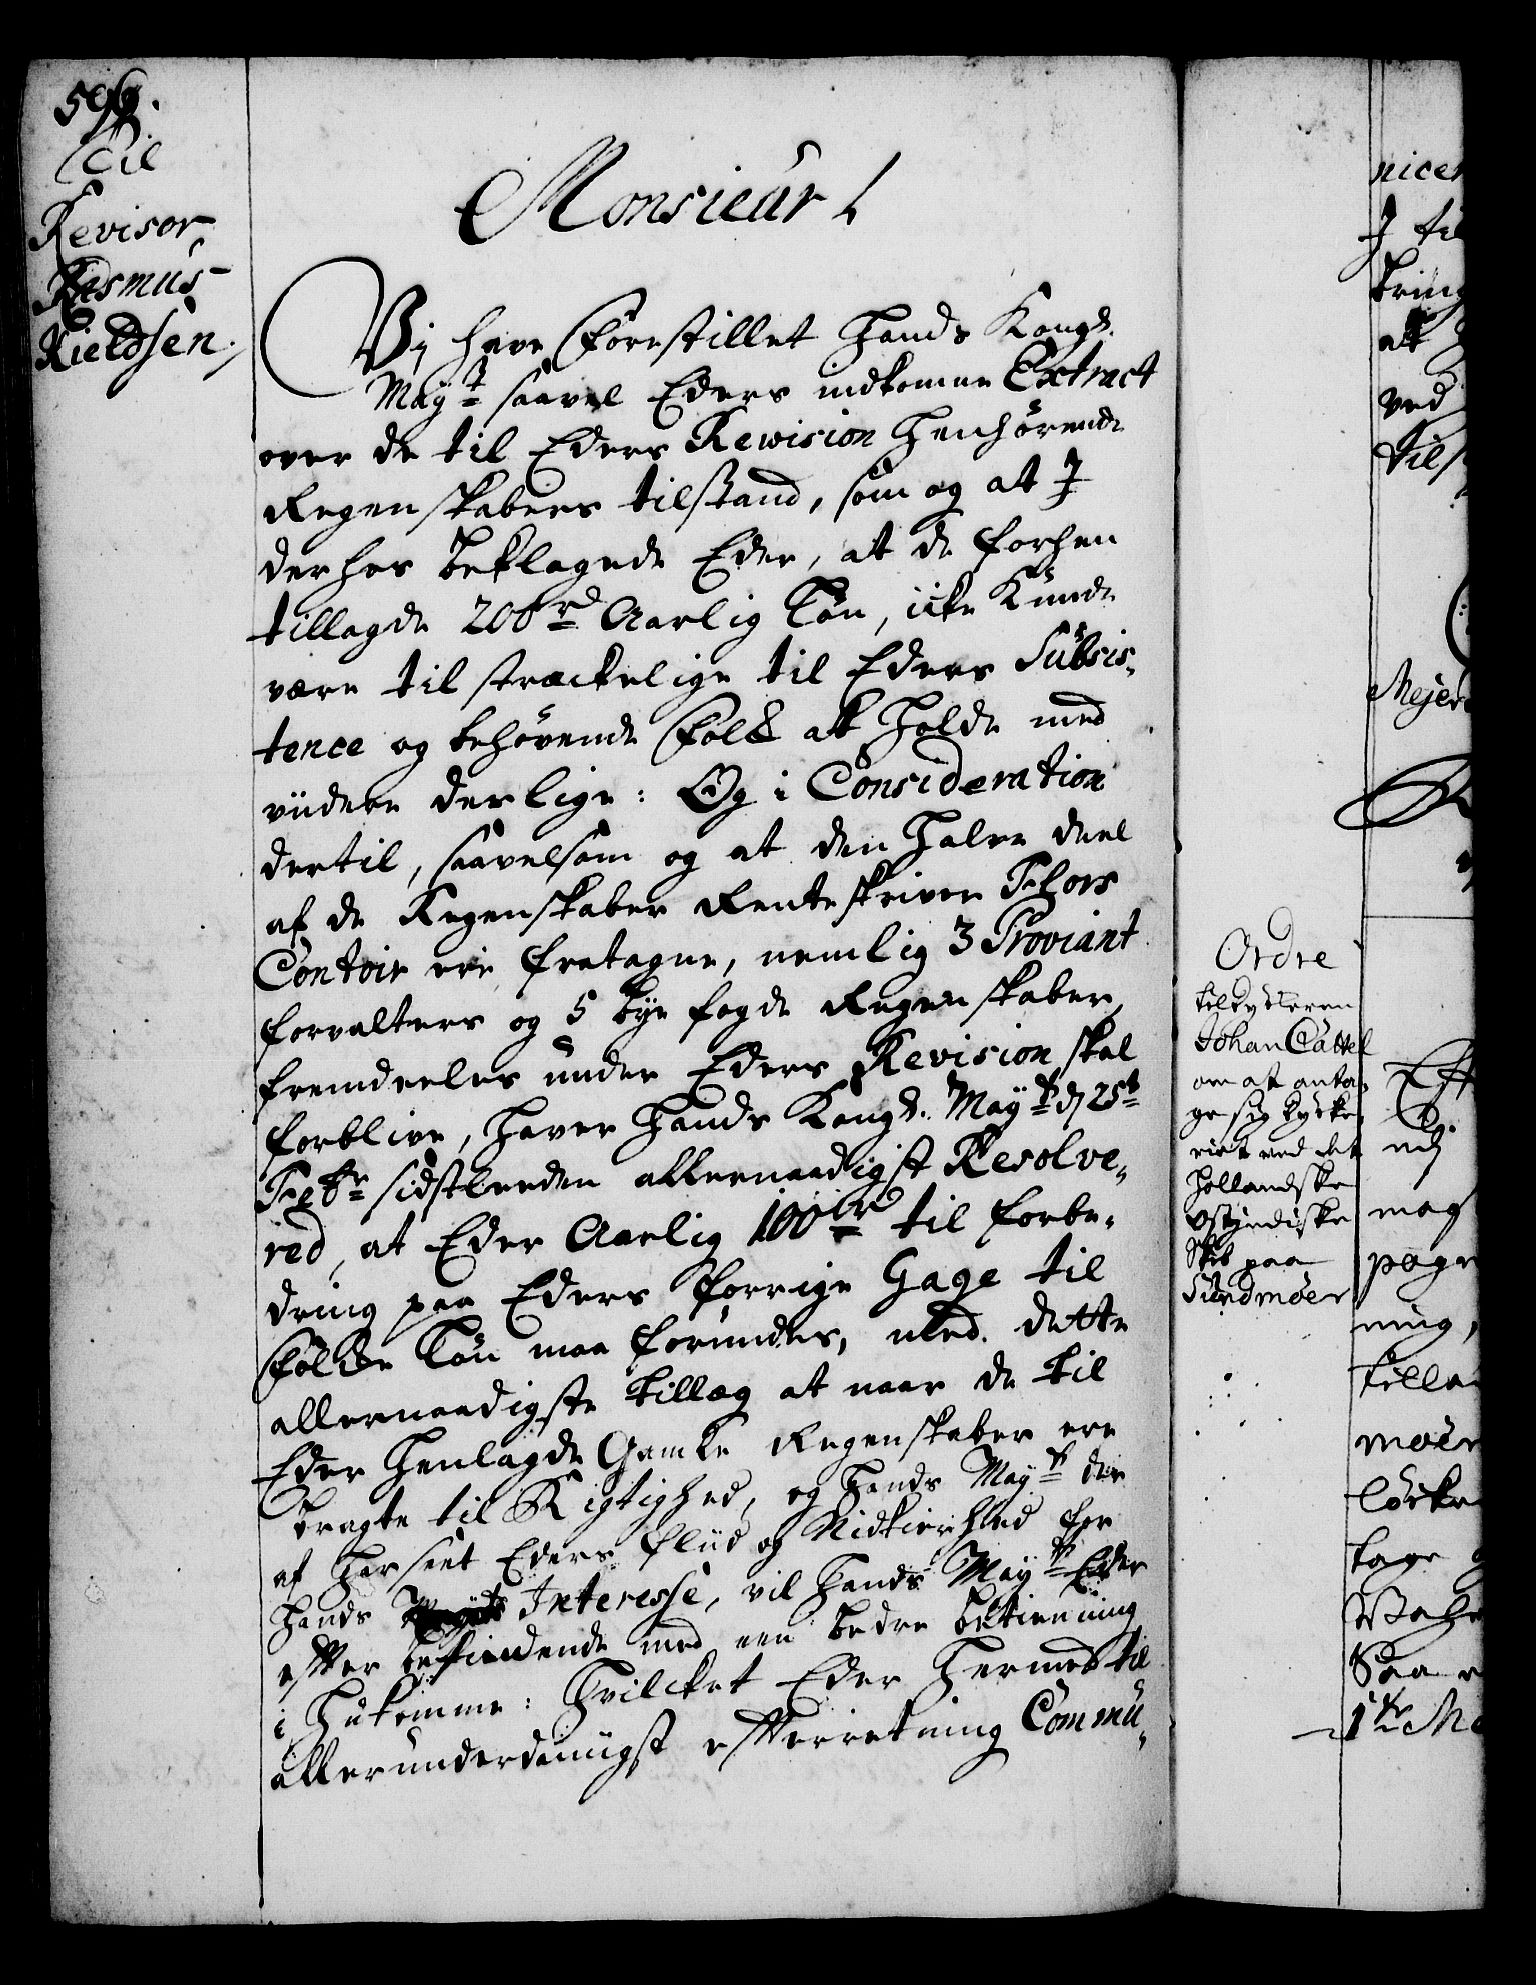 596.
Til
Revisor
Rasmus
Kieldsen.
Monsieur
Vi have forestillet Hands Kongl.
Mayt saavel Eders indkomne Extract
over de til Eders Rewision henhørende
Regenskabers tilstand, som og at I
derhos beklagede Eder, at de forhen
tillagde 200rd Aarlig Løn, icke kunde
være tilstræckelige til Eders Subsis-
tence og behøvende folk at holde med
viidere deslige: Og i Consideration
dertil, saavelsom og at den halve deel
af de Regenskaber Renteskriver Thors
Contoir ere fratagne, nemlig 3 Proviant
forvalters og 5 bye fogde Regenskaber,
fremdeeles under Eders Revision skal
forblive, haver Hands Kongl. Mayt d 25t
Febr sidstleeden allernaadigst Resolve-
red, at Eder Aarlig 100rd til forbe-
dring paa Eders forrige Gage til
følde Løn maa forundes, med dette
allernaadigste tillæg at naar de til
Eder henlagde Gamle Regenskaber ere
bragte til Rigtighed, og Hands Mayt der
af har seet Eders fliid og Nidkierhed for
Hands Interesse, vil Hands Mayt Eder
efter befindende med een bedre betienning
i Hukomme: Hvilcket Eder hermed til
allerunderdanigst efterretning Commu-
Ordre
til Tytteren
Johan Cattel
om at anta-
ge sig
ved det
Hollandske
Ostindiske
Skib paa
Sundmøer
nicer
I til
bring
at
ved
tils
Mejer
Eft
udj
mag
page
ning,
tillan
møer
tage
Saa
1te Ma